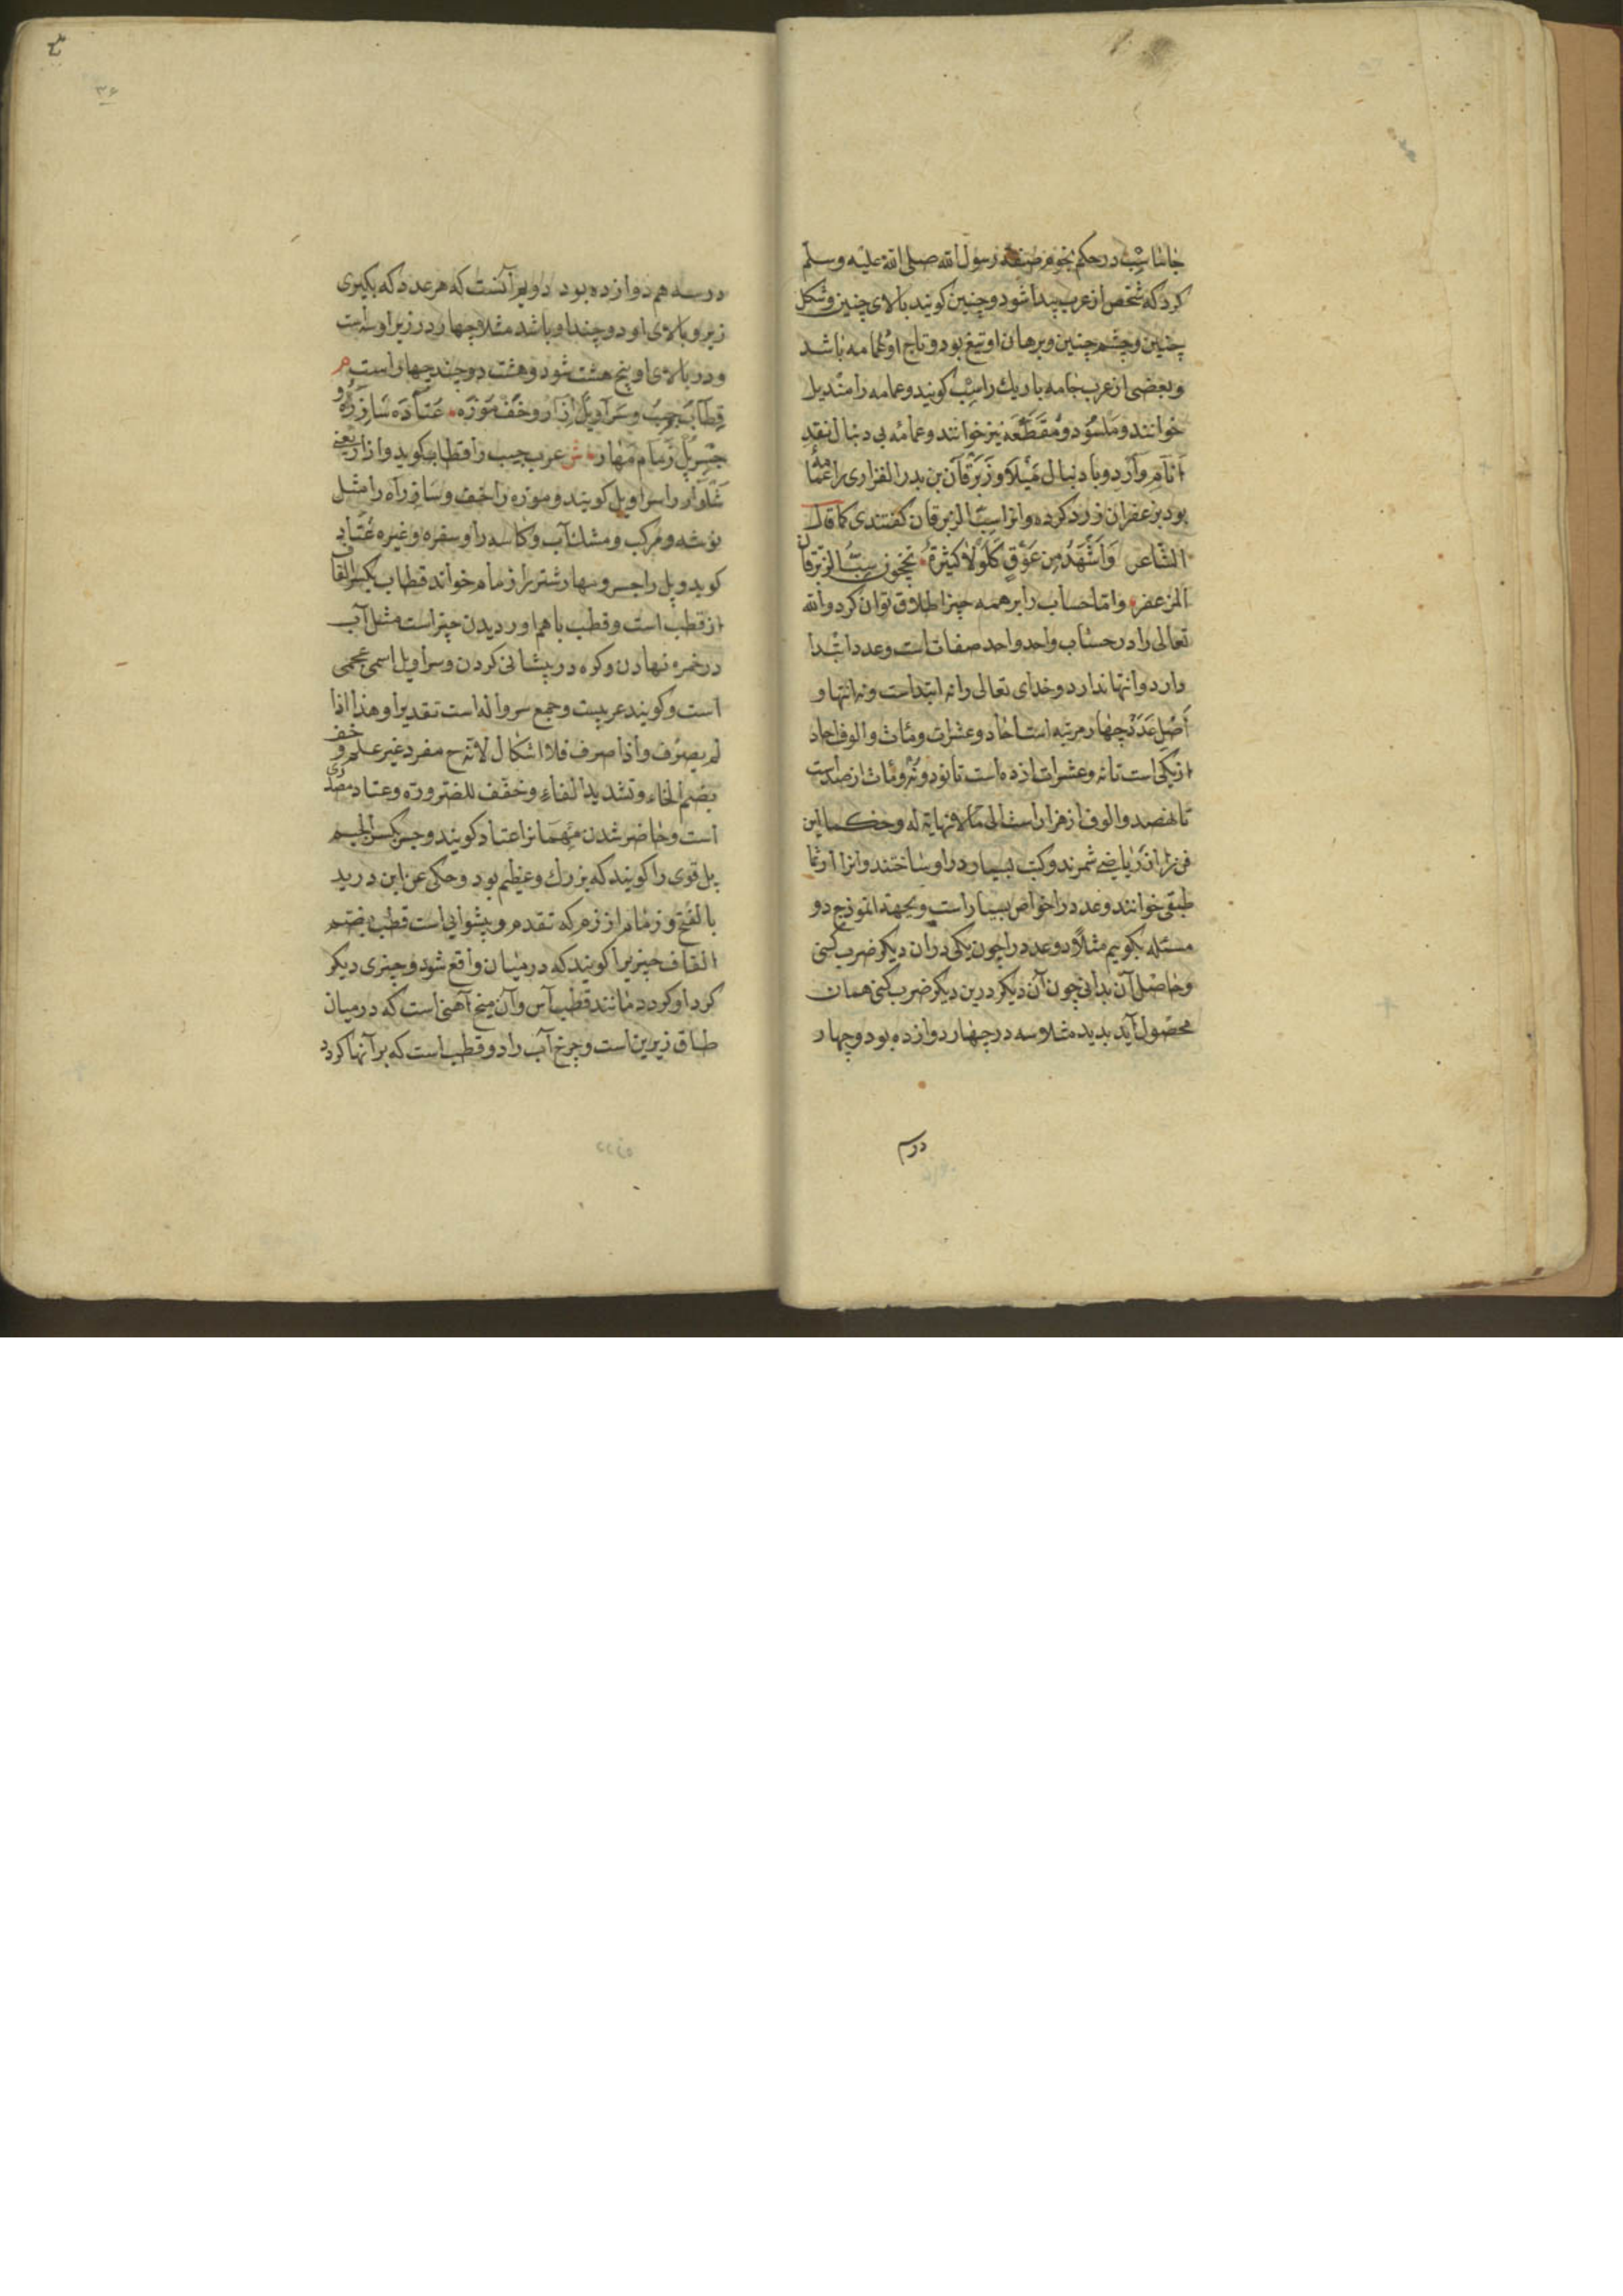 جاماسب در حکم نجوم صفة رسول الله صلی الله علیه وسلم
کرد که شخص از عرب پیدا شود و چنین کویند بالای چنین و شکل
چنین و چشم چنین و برهان او تیغ بود و تاج او عمامه باشد
و بعضی از عرب جامه باریك را سب کویند و عمامه را مندیل
خوانند و مشود و مقطعه نیز خوانند و عمامه بی دنبال
و با دنبال میلا و زبرقان بن بدر الفزاری را عمامهٔ
بود بزعفران زرد کرده و انرا سب الزبرقان کفتندی کما قال
الشاعر واشهد من عوف حلولا کثیرة یحجون سب الزبرقان
المزعفر واما حساب را بر همه چیز اطلاق توان کرد والله
تعالی را در حساب واحد واحد صفات است و عدد ابتدا
دارد و انتها ندارد و خدای تعالی را نه ابتداست و نه انتها و
اصل عدد چهار مرتبه است احاد و عشرات و مئات و الوف احاد
از یکی است تا نه و عشرات از ده است تا نود و نه و مئات از صد است
تا نهصد و الوف از هزار است الی ما لا نهایة له و حکما این
فن را از ریاضی شمرند و کتب بسیار در او ساختند و انرا ارثما
طیقی خوانند و عدد را خواص بسیار است و بجهة انموذج دو
مسئله بکوییم مثلا دو عدد را چون یکی در ان دیکر ضرب کنی
و حاصل آن بدانی چون آن دیکر درین دیکر ضرب کنی همان
محصول آید بدید مثلا سه در چهار دوازده بود و چهار
درسه
٣٦
در سه هم دوازده بود دویم آنست که هر عدد که بکیری
زیر و بالای او دو چند او باشد مثلا چهار در زیر او سه است
و در بالای او پنج هشت شود و هشت دو چند چهار است م
قطاب جیب و سراویل ازار و خف موزه عتاد ساز ره و
جسر پل زمام مهار ش عرب جیب را قطاب کوید و ازار یعنی
شلوار را سراویل کویند و موزه را خف و ساز راه را مثل
توشه و مرکب و مشك آب و کاسه را و سفره و غیره عتاد
کوید و پل را جسر و مهار شتر را زمام خواند قطاب بکسر القاف
از قطب است و قطب با هم اوردن چیز است مثل آب
در خمره نهادن و کره در پیشانی کردن و سراویل اسمی عجمی
است و کویند عربیست و جمع سرواله است تقدیرا و هذا اذا
لم یصرف و اذا صرف فلا اشکال لانه ح مفرد غیر علم و خف
بضم الخاء و تشدید الفاء و خفف للضرورة و عتاد مصدری
است و حاضر شدن مهمانرا عتاد کویند و جسر بکسر الجیم
پل قوی را کویند که بزرك و عظیم بود و حکی عن ابن درید
بالفتح و زمام از زم که تقدم و پیشوایی است قطب بضم
القاف چیزیرا کویند که در میان واقع شود و چیزی دیکر
کرد او کردد مانند قطب آس و آن میخ آهنی است که در میان
طاق زیرین است و چرخ آب را دو قطب است که بر آنها کردد